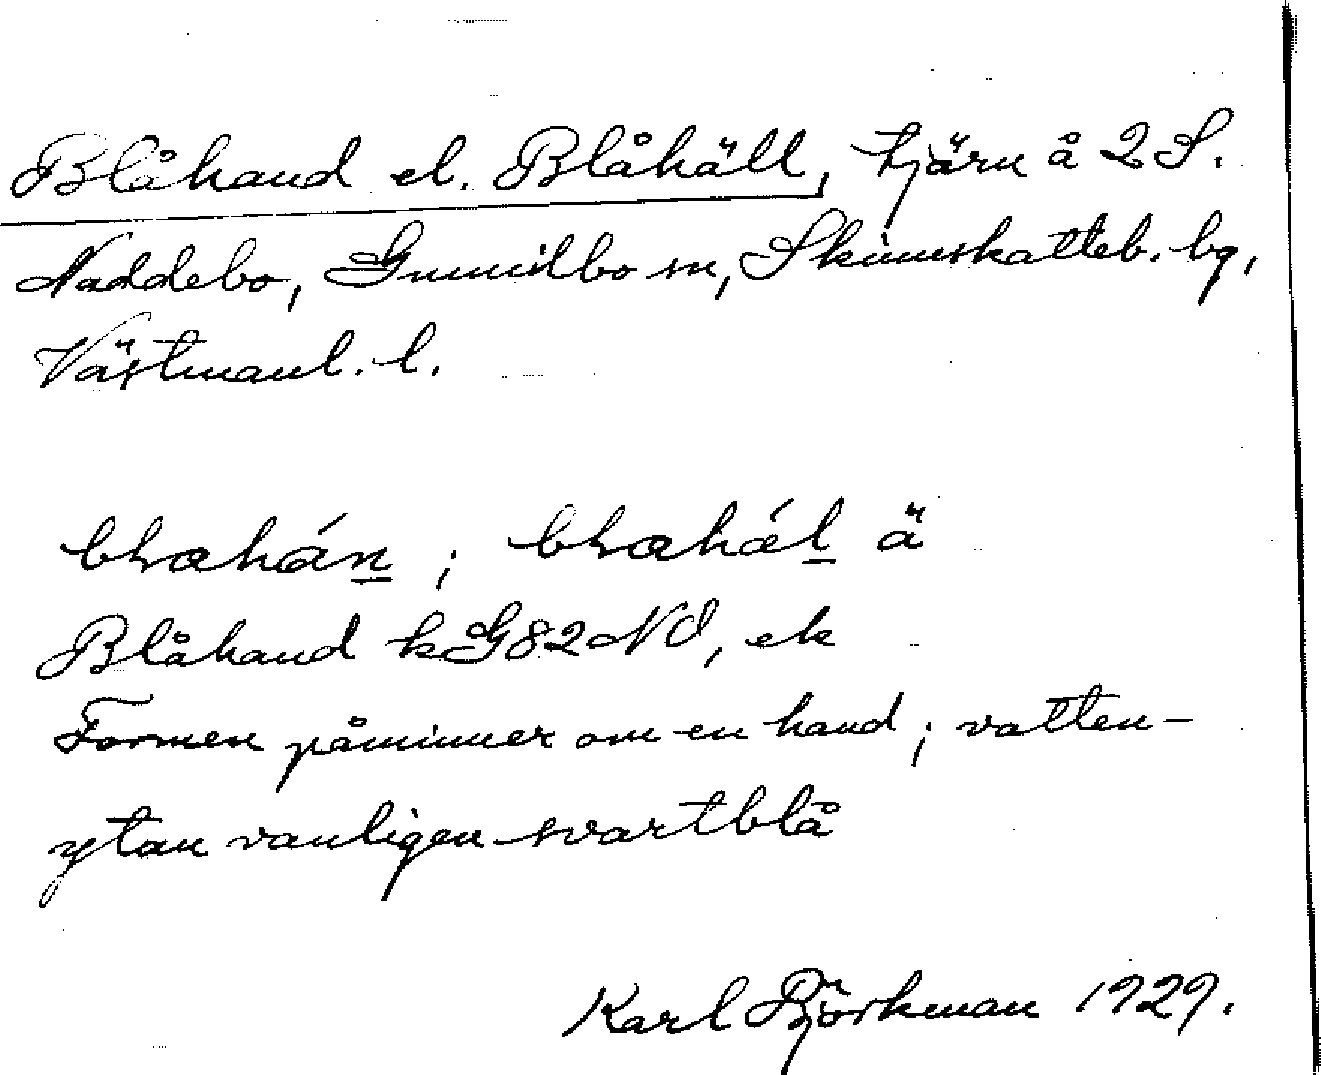 Blåhand el. Blåhäll, tjärn å 2 S.
Naddebo, Gunnilbo sn, Skinnskatteb. bg,
Västmanl. l.
bɩahán̲ ; bɩahál̲ ä
Blåhand kG82NO, ek
Formen påminner om en hand ; vatten-
ytan vanligen svartblå
Karl Björkman 1929.